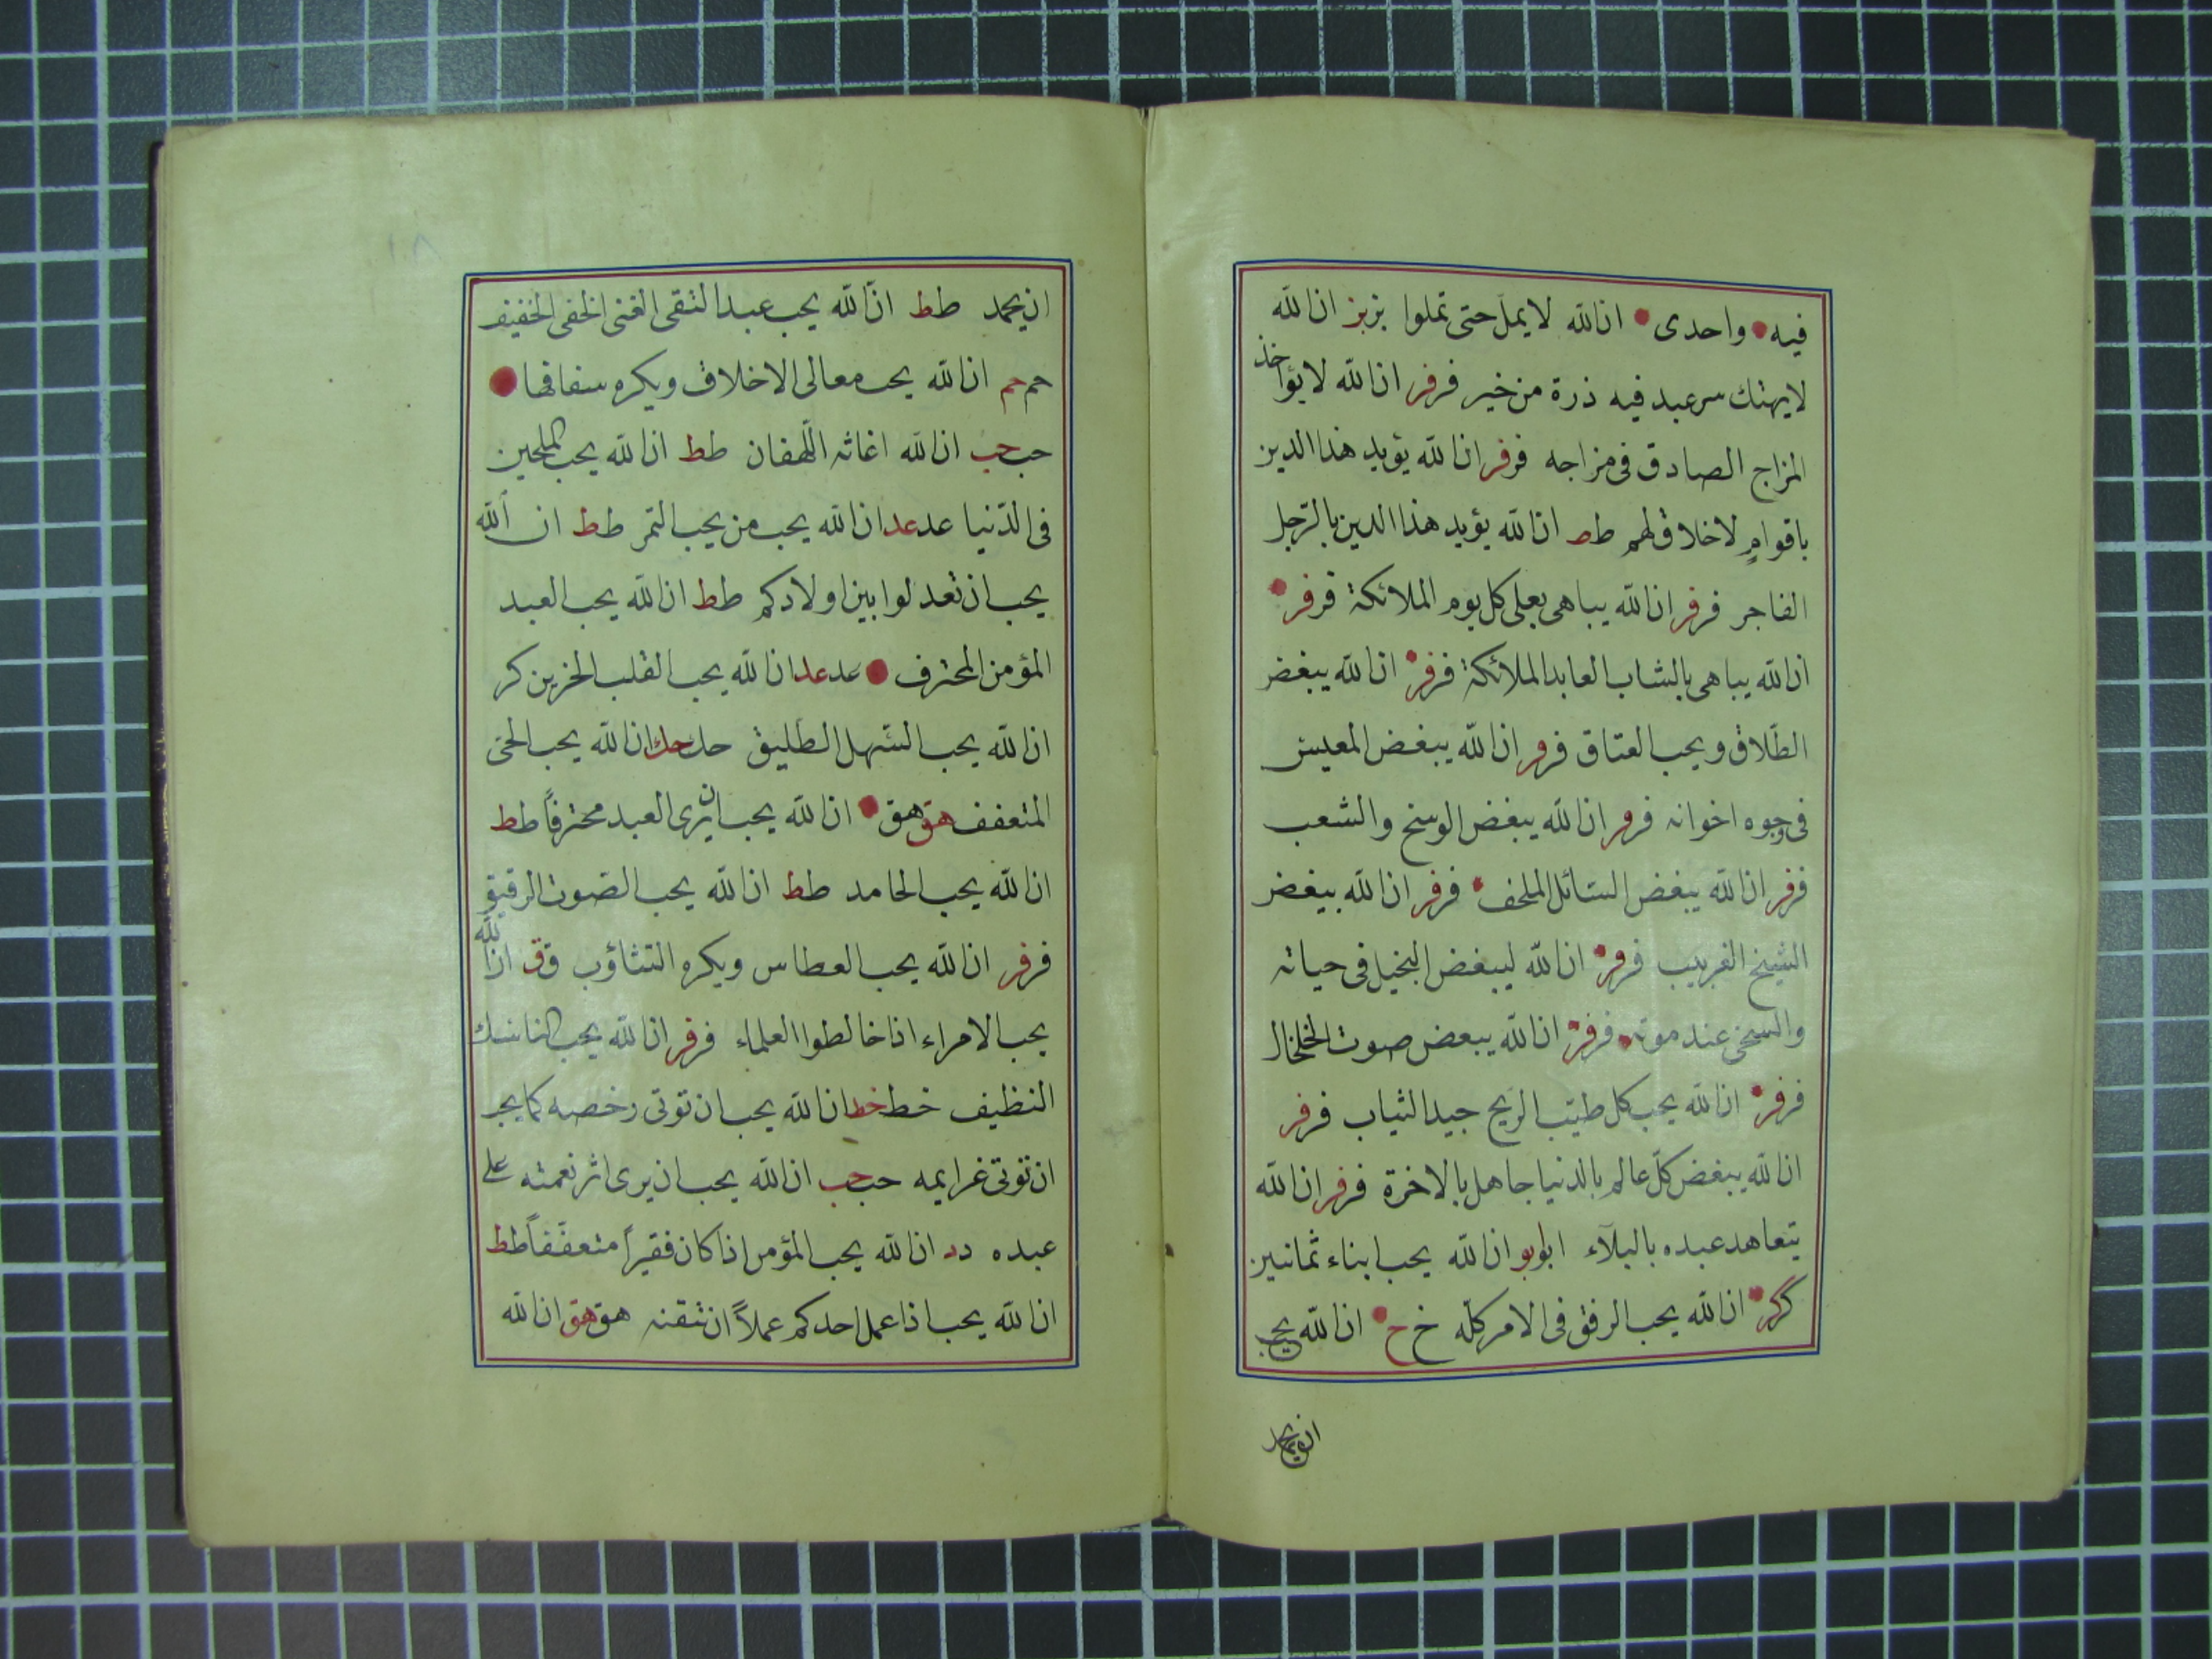 فيه واحدى ان الله لا يملّ حتى تملوا بز بز ان الله
لا يهتك سر عبد فيه ذرة من خير فر فر ان الله لا يؤاخذ
المزاج الصادق فى مزاجه فر فر ان الله يؤيد هذا الدين
باقوامٍ لا خلاق لهم طط ان الله يؤيد هذا الدين بالرّجل
الفاجر فر فر ان الله يباهى بعلى كل يوم الملائكة فر فر
ان الله يباهى بالشاب العابد الملائكة فر فر ان الله يبغض
الطّلاق ويحب العتاق فر فر ان الله يبغض المعبس
فى وجوه اخوانه فر فر ان الله يبغض الوسخ والشعب
فر فر ان الله يبغض السّائل الملحف فر فر ان الله يبغض
الشيخ الغربيب فر فر ان الله ليبغض البخيل فى حياته
والسخى عند موته فر فر ان الله يبعض صوت الخلخال
فر فر ان الله يحب كل طيّب الريح جيد الثياب فر فر
ان الله يبغض كلّ عالم بالدنيا جاهل بالاخرة فر فر ان الله
يتعاهد عبده بالبلآء ابو بو ان الله يحب ابناء ثمانين
كر كر ان الله يحب الرفق فى الامر كلّه خ خ ان الله يحب
ان يحمد
ان يحمد طط انّ الله يحب عبد التقى الغنى الخفى الخفيف
حم حم ان الله يحب معالى الاخلاق ويكره سفافها
حب حب ان الله اغاثه اللّهفان طط ان الله يحب الملحين
فى الدّنيا عد عد ان الله يحب من يحب التمر طط ان الله
يحب ان تعدلوا بين اولادكم طط ان الله يحب العبد
المؤمن المحترف عد عد ان الله يحب القلب الحزين كر
ان الله يحب السّهل الطّليق حك حك ان الله يحب الحى
المتعفف هق هق ان الله يحب ان يرى العبد محترفاً طط
ان الله يحب الحامد طط ان الله يحب الصّوت الرقيق
فر فر ان الله يحب العطاس ويكره التثاؤب ق ق ان الله
يحب الامراء اذا خالطوا العلماء فر فر ان الله يحب الناسك
النظيف خط خط ان الله يحب ان توتى رخصه كما يحب
ان توتى غرايمه حب حب ان الله يحب ان يرى اثر نعمته على
عبده د د ان الله يحب المؤمن اذا كان فقيراً متعفّفاً طط
ان الله يحب اذا عمل احدكم عملاً ان تتقنه هق هق ان الله